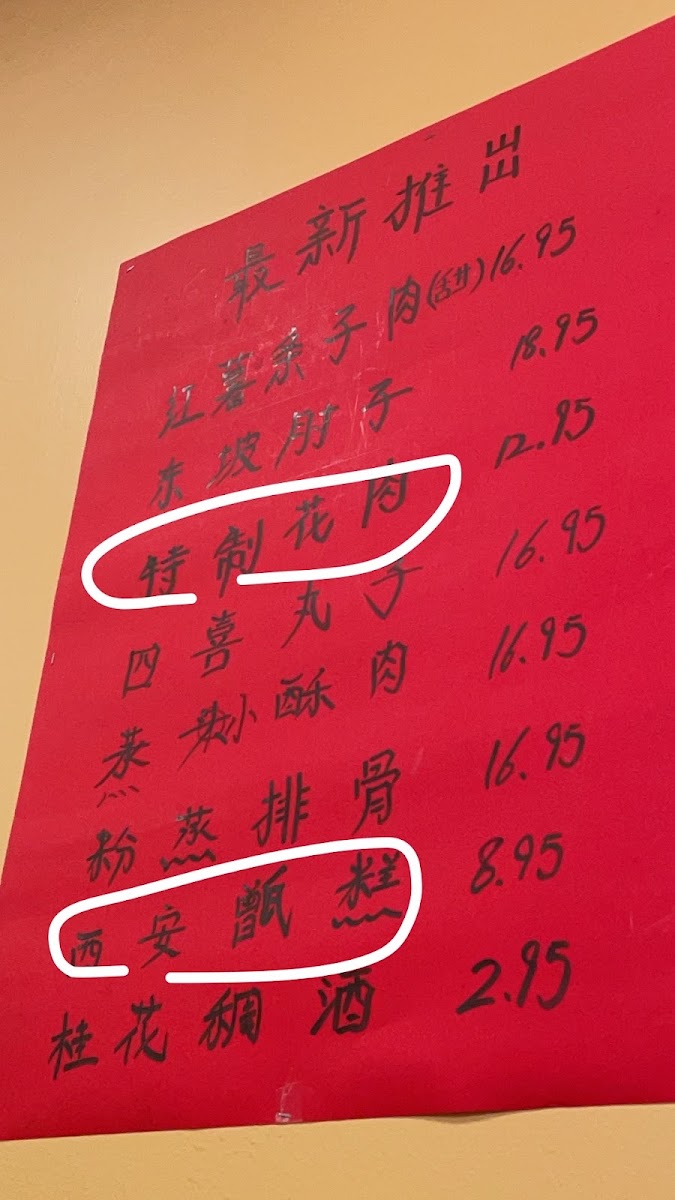 最新推出
红薯条子肉(甜)16.95
东坡肘子 18.95
特制花肉 12.95
四喜丸子 16.95
蒸小酥肉 16.95
粉蒸排骨 16.95
西安甑糕 8.95
桂花稠酒 2.95